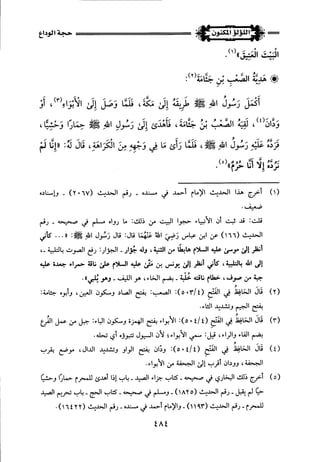 اللؤلؤ المكنون
حجة الوداع
البَيْتَ العَتِيقَ»(١).
* هَدِيَّةُ الصَّعْبِ بْنِ جَثَّامَةَ(٢):
أَكْمَلَ رَسُولُ اللهِ ﷺ طَرِيقَهُ إِلَى مَكَّةَ، فَلَمَّا وَصَلَ إِلَى الأَبْوَاءِ(٣)، أَوْ
وَدَّانَ(٤)، لَقِيَهُ الصَّعْبُ بْنُ جَثَّامَةَ، فَأَهْدَى إِلَى رَسُولِ اللهِ ﷺ حِمَارًا وَحْشِيًّا،
فَرَدَّهُ عَلَيْهِ رَسُولُ اللهِ ﷺ، فَلَمَّا رَأَى مَا فِي وَجْهِهِ مِنَ الكَرَاهَةِ، قَالَ لَهُ: «إِنَّا لَمْ
نَرُدَّهُ إِلَّا أَنَّا حُرُمٌ»(٥).
(١) أخرج هذا الحديث الإمام أحمد في مسنده - رقم الحديث (٢٠٦٧) - وإسناده
ضعيف.
قلت: قد ثبت أن الأنبياء حجوا البيت من ذلك: ما رواه مسلم في صحيحه - رقم
الحديث (١٦٦) عن ابن عباس رَضِيَ اللهُ عَنْهُمَا قال: قال رسول الله ﷺ: «... كأني
أنظر إلى موسى عليه السلام هابطًا من الثنية، وله جُؤار - الجؤار: رفع الصوت بالتلبية -،
إلى الله بالتلبية، كأني أنظر إلى يونس بن متى عليه السلام على ناقة حمراء جعدة عليه
جبة من صوف، خطام ناقته خُلْبة - بضم الخاء، هو الليف - وهو يُلبي».
(٢) قال الحافظ في الفتح (٥٠٣/٤): الصعب: بفتح الصاد وسكون العين، وأبوه جثامة:
بفتح الجيم وتشديد الثاء.
(٣) قال الحافظ في الفتح (٥٠٤/٤): الأبواء بفتح الهمزة وسكون الباء: جبل من عمل الفرع
بضم الفاء والراء، قيل: سمي الأبواء، لأن السيول تتبوؤه أي تحله.
(٤) قال الحافظ في الفتح (٥٠٤/٤): ودان بفتح الواو وتشديد الدال، موضع بقرب
الجحفة، وودان أقرب إلى الجحفة من الأبواء.
(٥) أخرج ذلك البخاري في صحيحه - كتاب جزاء الصيد - باب إذا أهدى للمحرم حمارًا وحشيًا
حيًا لم يقبل - رقم الحديث (١٨٢٥) - ومسلم في صحيحه - كتاب الحج - باب تحريم الصيد
للمحرم - رقم الحديث (١١٩٣) - والإمام أحمد في مسنده - رقم الحديث (١٦٤٢٢).
٤٨٤